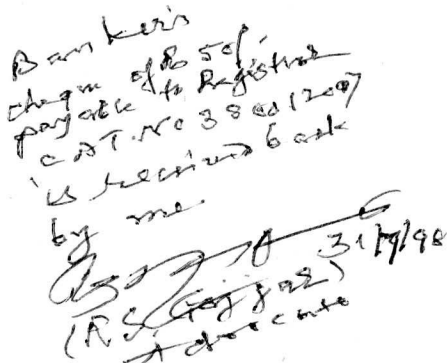 Banker's
cheque of Rs 50/-
payable to Registrar
CAT. No 38
is received back
by me
(R.S. Gajjar)
Advocate